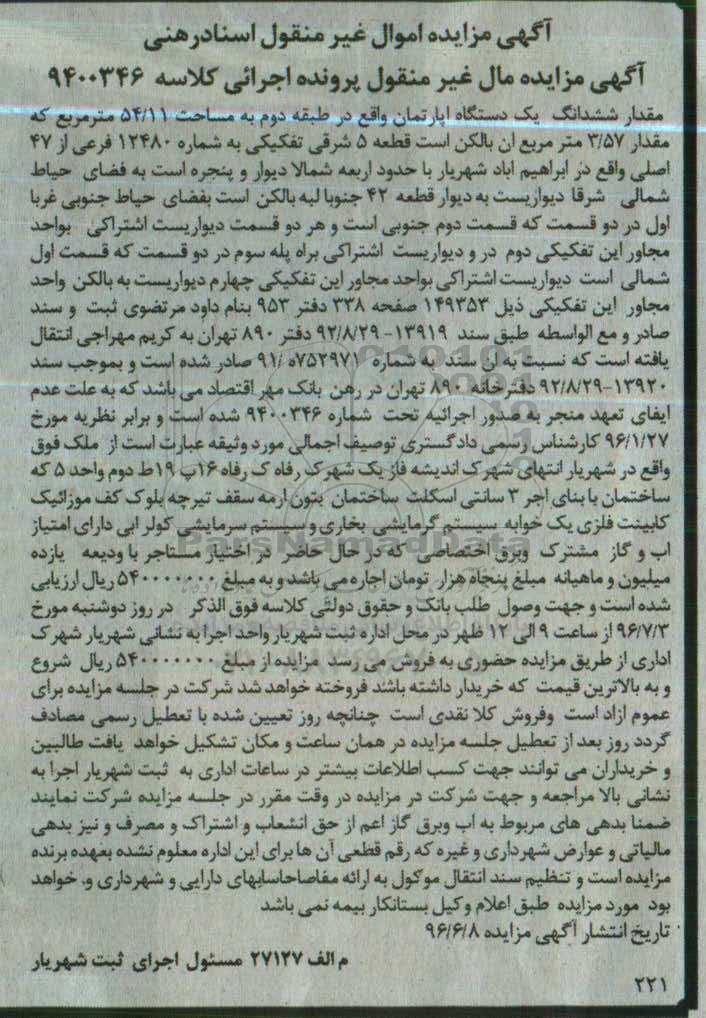 آگهی مزایده اموال غیر منقول اسنادرهنی
آگهی مزایده مال غیر منقول پرونده اجرائی کلاسه ۹۴۰۰۳۴۶
مقدار ششدانگ یک دستگاه اپارتمان واقع در طبقه دوم به مساحت ۵۴/۱۱ مترمربع که
مقدار ۳/۵۷ متر مربع ان بالکن است قطعه ۵ شرقی تفکیکی به شماره ۱۲۴۸۰ فرعی از ۴۷
اصلی واقع در ابراهیم اباد شهریار با حدود اربعه شمالا دیوار و پنجره است به فضای حیاط
شمالی شرقا دیواریست به دیوار قطعه ۴۲ جنوبا لبه بالکن است بفضای حیاط جنوبی غربا
اول در دو قسمت که قسمت دوم جنوبی است و هر دو قسمت دیواریست اشتراکی بواحد
مجاور این تفکیکی دوم در و دیواریست اشتراکی براه پله سوم در دو قسمت که قسمت اول
شمالی است دیواریست اشتراکی بواحد مجاور این تفکیکی چهارم دیواریست به بالکن واحد
مجاور این تفکیکی ذیل ۱۴۹۳۵۳ صفحه ۳۳۸ دفتر ۹۵۳ بنام داود مرتضوی ثبت و سند
صادر و مع الواسطه طبق سند ۱۳۹۱۹-۹۲/۸/۲۹ دفتر ۸۹۰ تهران به کریم مهراجی انتقال
یافته است که نسبت به ان سند به شماره ۷۵۲۹۷۱ه /۹۱ صادر شده است و بموجب سند
۱۳۹۲۰-۹۲/۸/۲۹ دفترخانه ۸۹۰ تهران در رهن بانک مهر اقتصاد می باشد که به علت عدم
ایفای تعهد منجر به صدور اجرائیه تحت شماره ۹۴۰۰۳۴۶ شده است و برابر نظریه مورخ
۹۶/۱/۲۷ کارشناس رسمی دادگستری توصیف اجمالی مورد وثیقه عبارت است از ملک فوق
واقع در شهریار انتهای شهرک اندیشه فاز یک شهرک رفاه ک رفاه ۱۶پ ۱۹ط دوم واحد ۵ که
ساختمان با بنای اجر ۳ سانتی اسکلت ساختمان بتون ارمه سقف تیرچه بلوک کف موزائیک
کابینت فلزی یک خوابه سیستم گرمایشی بخاری و سیستم سرمایشی کولر ابی دارای امتیاز
اب و گاز مشترک وبرق اختصاصی که در حال حاضر در اختیار مستاجر با ودیعه یازده
میلیون و ماهیانه مبلغ پنجاه هزار تومان اجاره می باشد و به مبلغ ۵۴۰۰۰۰۰۰۰ ریال ارزیابی
شده است و جهت وصول طلب بانک و حقوق دولتی کلاسه فوق الذکر در روز دوشنبه مورخ
۹۶/۷/۳ از ساعت ۹ الی ۱۲ ظهر در محل اداره ثبت شهریار واحد اجرا به نشانی شهریار شهرک
اداری از طریق مزایده حضوری به فروش می رسد مزایده از مبلغ ۵۴۰۰۰۰۰۰۰ ریال شروع
و به بالاترین قیمت که خریدار داشته باشد فروخته خواهد شد شرکت در جلسه مزایده برای
عموم ازاد است وفروش کلا نقدی است چنانچه روز تعیین شده با تعطیل رسمی مصادف
گردد روز بعد از تعطیل جلسه مزایده در همان ساعت و مکان تشکیل خواهد یافت طالبین
و خریداران می توانند جهت کسب اطلاعات بیشتر در ساعات اداری به ثبت شهریار اجرا به
نشانی بالا مراجعه و جهت شرکت در مزایده در وقت مقرر در جلسه مزایده شرکت نمایند
ضمنا بدهی های مربوط به اب وبرق گاز اعم از حق انشعاب و اشتراک و مصرف و نیز بدهی
مالیاتی و عوارض شهرداری و غیره که رقم قطعی آن ها برای این اداره معلوم نشده بعهده برنده
مزایده است و تنظیم سند انتقال موکول به ارائه مفاصاحسابهای دارایی و شهرداری و. خواهد
بود مورد مزایده طبق اعلام وکیل بستانکار بیمه نمی باشد
تاریخ انتشار آگهی مزایده ۹۶/۶/۸
م الف ۲۷۱۲۷ مسئول اجرای ثبت شهریار
۲۲۱
ParsNamadData